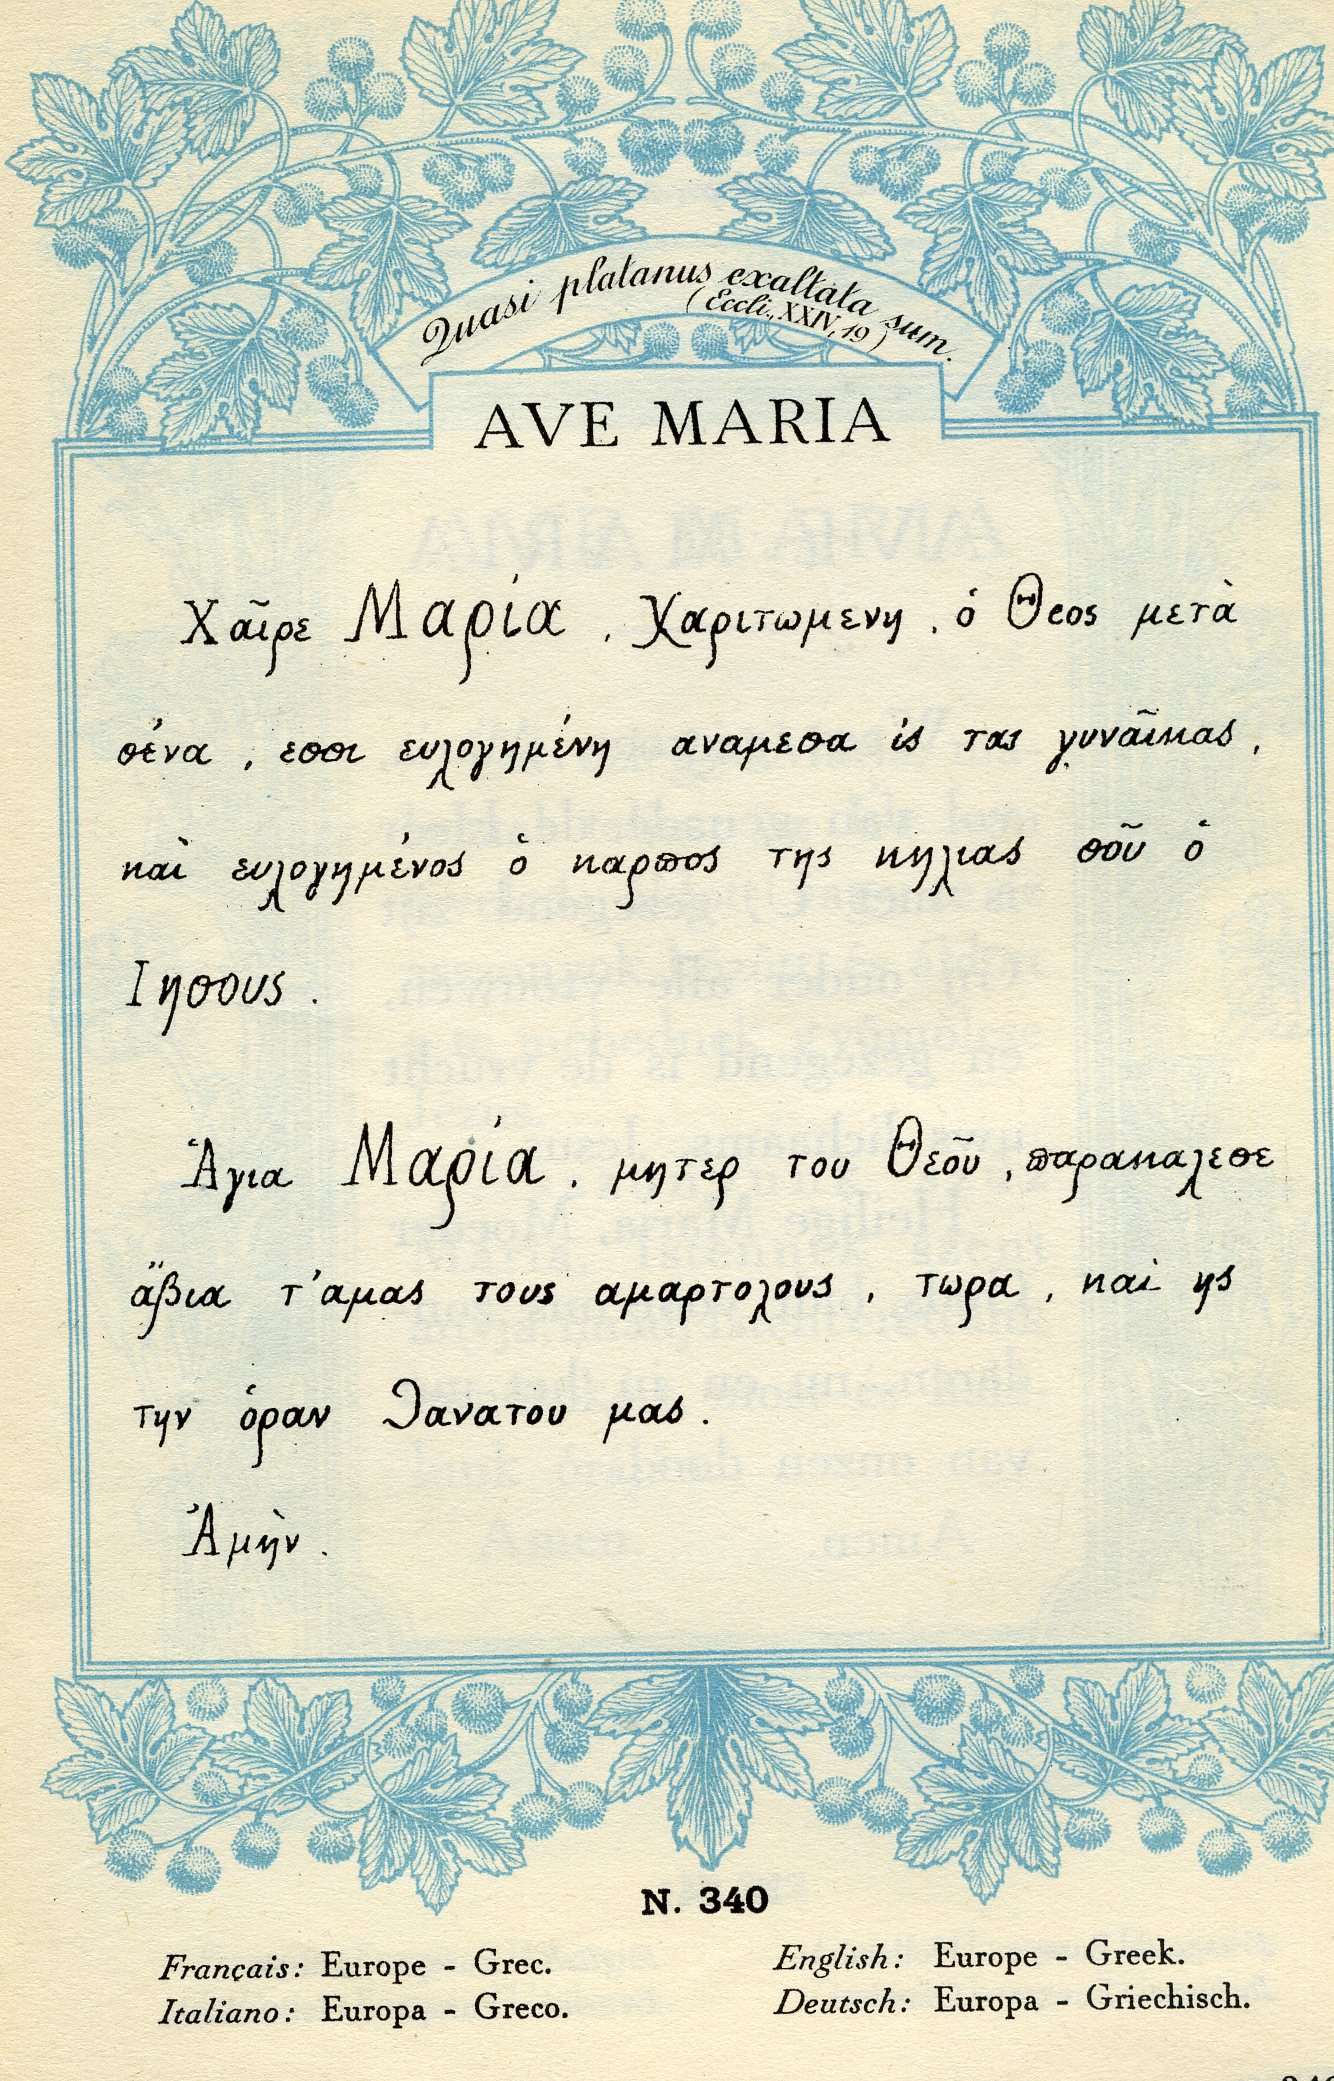 Quasi platanus exaltata sum.
(Eccli., XXIV, 19)
AVE MARIA
Χαῖρε Μαρία, Χαριτωμενη, ὁ Θεος μετὰ
σένα, εσσι ευλογημένη αναμεσα ἰς τας γυναῖκας,
καὶ ευλογημένος ὁ καρπος της κηλιας σοῦ ὁ
Ιησους.
Ἁγια Μαρία, μητερ του Θεοῦ, παρακαλεσε
ἄβια τ'αμας τους αμαρτολους, τωρα, και ης
την ὁραν θανατου μας.
Ἀμὴν.
N. 340
Français: Europe - Grec.
Italiano: Europa - Greco.
English: Europe - Greek.
Deutsch: Europa - Griechisch.